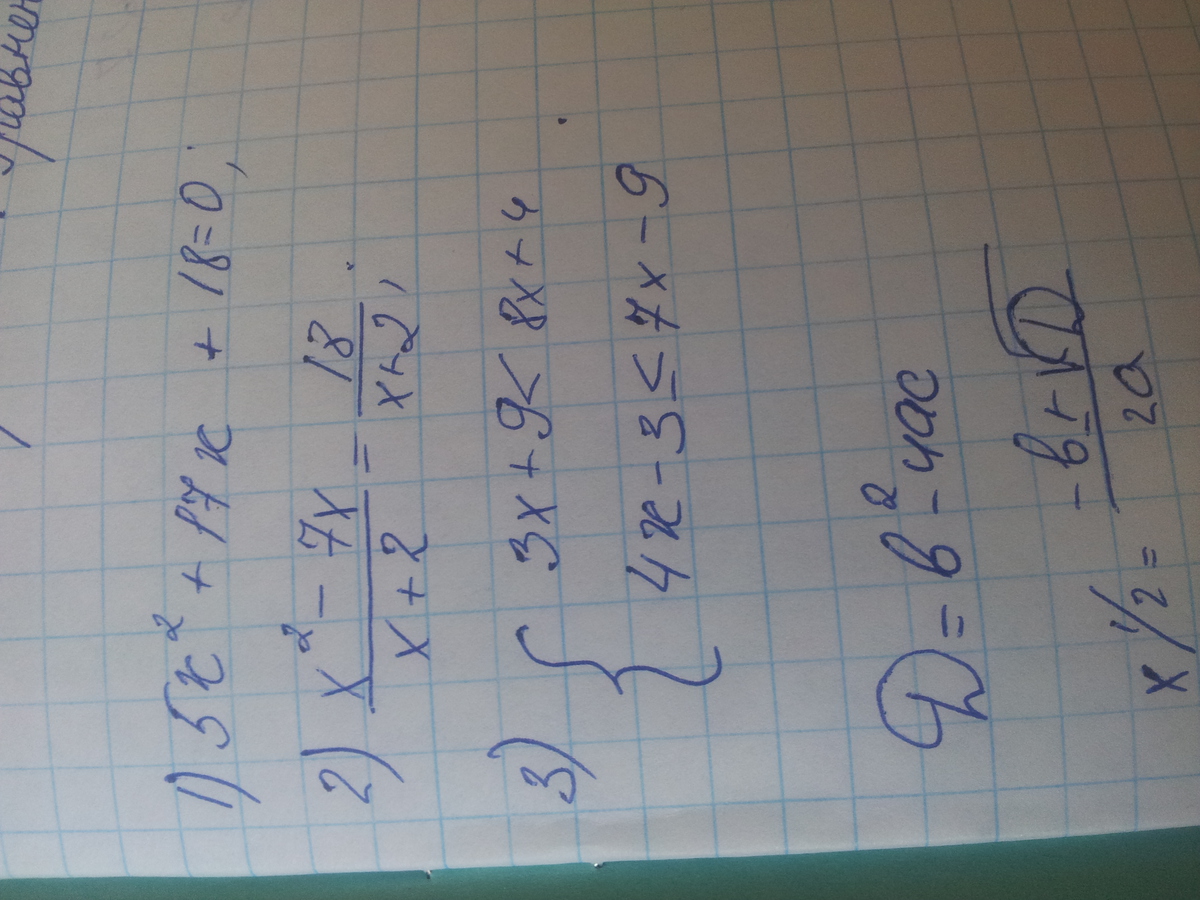 уравнен
1) 5x² + 17x + 18 = 0;
2) (x² - 7x)/(x + 2) = 18/(x + 2);
3) { 3x + 9 < 8x + 4
4x - 3 ≤ 7x - 9
D = b² - 4ac
x 1/2 = (-b ± √D)/(2a)